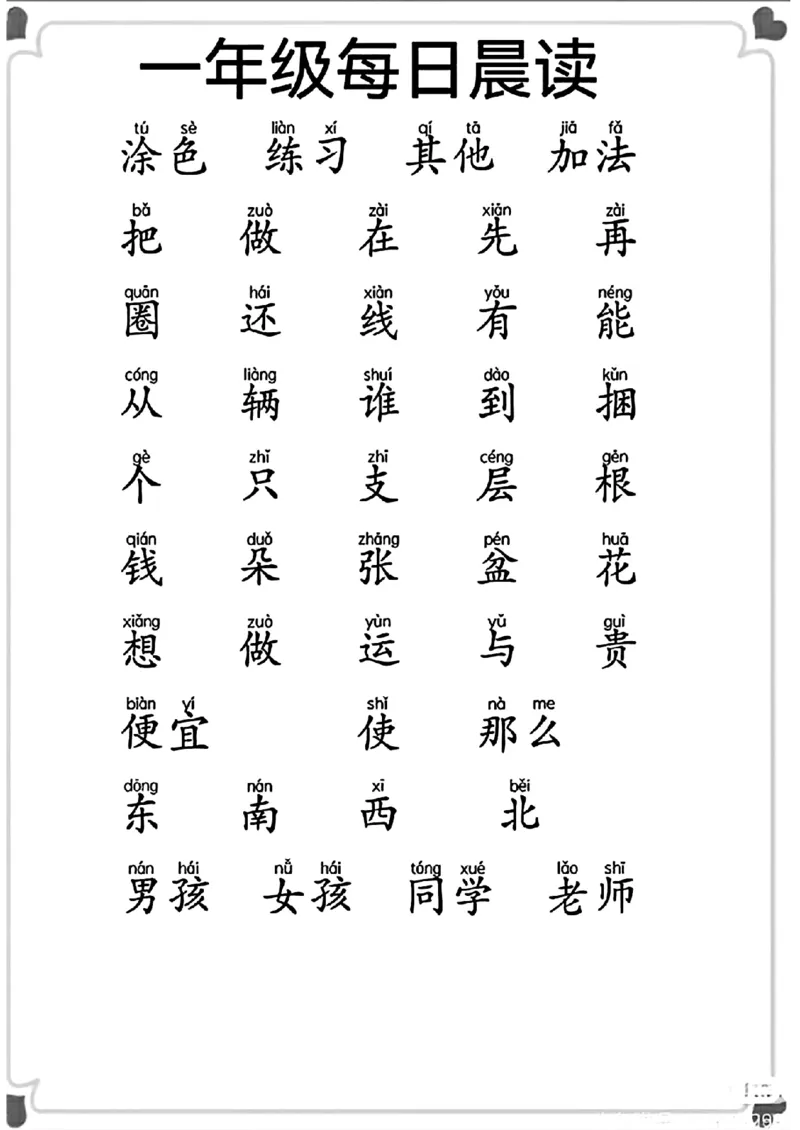 一年级每日晨读
tú sè liàn xí qí tā jiā fǎ
涂色 练习 其他 加法
bǎ zuò zài xiān zài
把 做 在 先 再
quān hái xiàn yǒu néng
圈 还 线 有 能
cóng liàng shuí dào kǔn
从 辆 谁 到 捆
gè zhǐ zhī céng gēn
个 只 支 层 根
qián duǒ zhāng pén huā
钱 朵 张 盆 花
xiǎng zuò yùn yǔ guì
想 做 运 与 贵
biàn yí shǐ nà me
便宜 使 那么
dōng nán xī běi
东 南 西 北
nán hái nǚ hái tóng xué lǎo shī
男孩 女孩 同学 老师